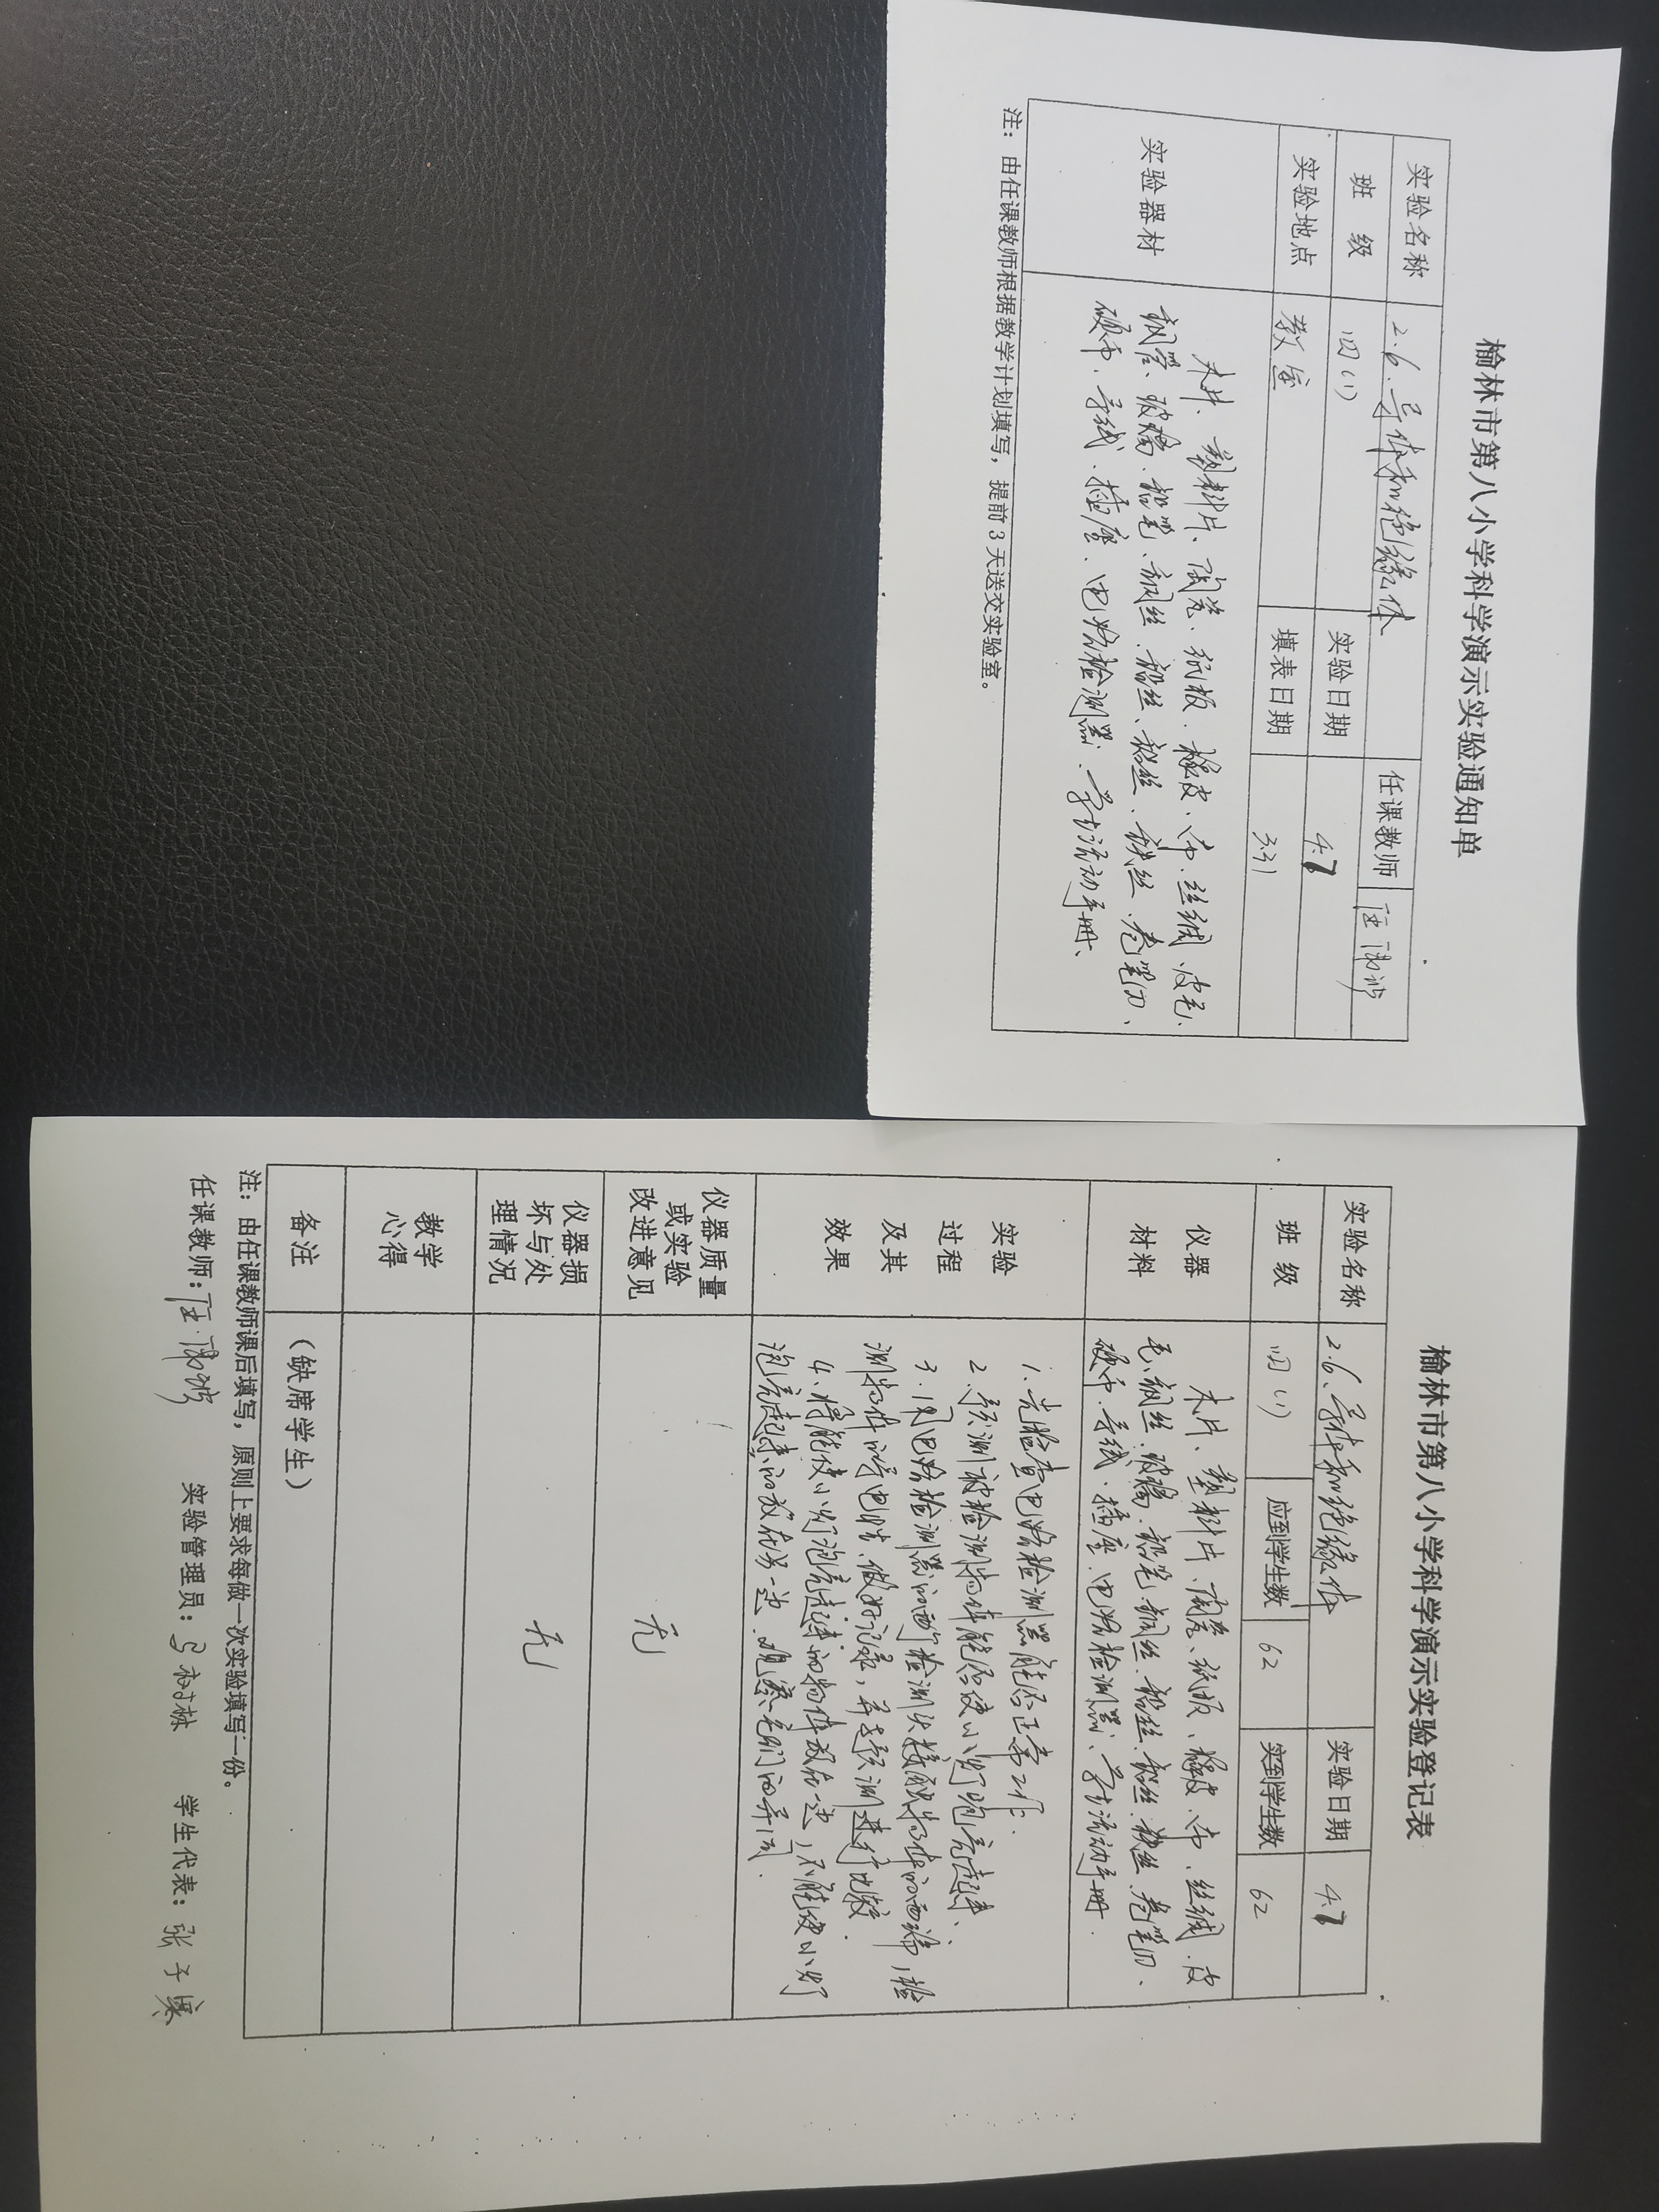 榆林市第八小学科学演示实验通知单
实验名称 2.6、导体和绝缘体 任课教师
班 级 四(1) 实验日期 4.7
实验地点 教室 填表日期 3.31
实验器材
木片、塑料片、陶瓷、纸板、橡皮、布、丝绸、皮毛、
玻璃、铅笔、铜丝、铝丝、铁丝、卷笔刀、
硬币、导线、插座、电路检测器、学生活动手册、
注：由任课教师根据教学计划填写，提前3天送交实验室。
榆林市第八小学科学演示实验登记表
实验名称 2.6、导体和绝缘体 实验日期 4.7
班 级 四(1) 应到学生数 62 实到学生数 62
仪器材料
木片、塑料片、陶瓷、纸板、橡皮、布、丝绸、皮
毛、铜丝、玻璃、铅笔、铜丝、铝丝、铁丝、卷笔刀、
硬币、导线、插座、电路检测器、学生活动手册.
实验过程及其效果
1.先检查电路检测器能否正常工作.
2.预测被检测物体能否使小灯泡亮起来、
3.用电路检测器的两个检测头接触物体的两端，检
测物体的导电性，做好记录，并与预测进行比较.
4、将能使小灯泡亮起来的物体放在一边，不能使小灯
泡亮起来的放在另一边.观察它们的异同.
仪器质量或实验改进意见 无
仪器损坏与处理情况 无
教学心得
备注 (缺席学生)
注：由任课教师课后填写，原则上要求每做一次实验填写一份。
任课教师： 实验管理员： 学生代表：张子